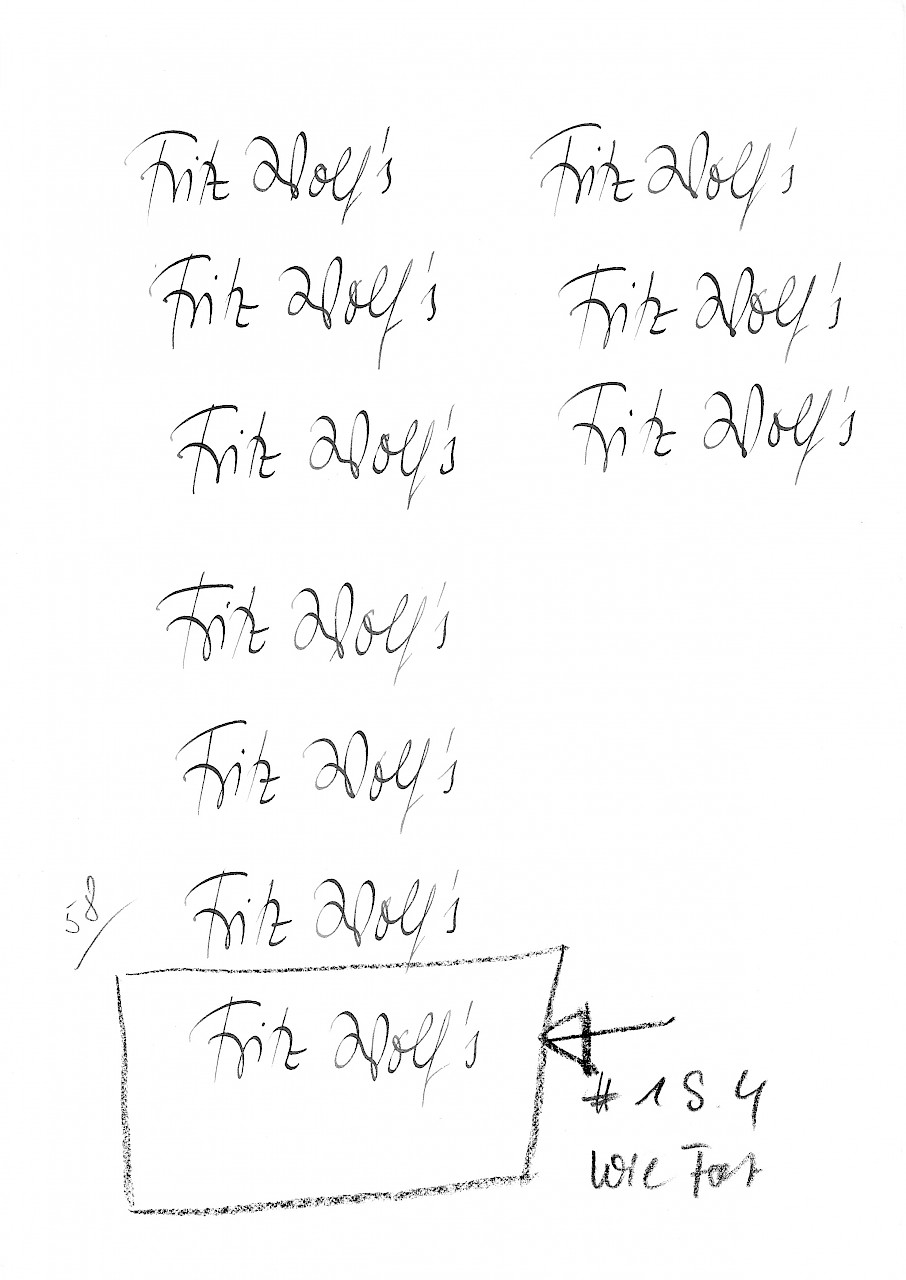 Fritz Wolf's Fritz Wolf's
Fritz Wolf's Fritz Wolf's
Fritz Wolf's Fritz Wolf's
Fritz Wolf's
Fritz Wolf's
58/ Fritz Wolf's
Fritz Wolf's
# 1 S. 4
wie